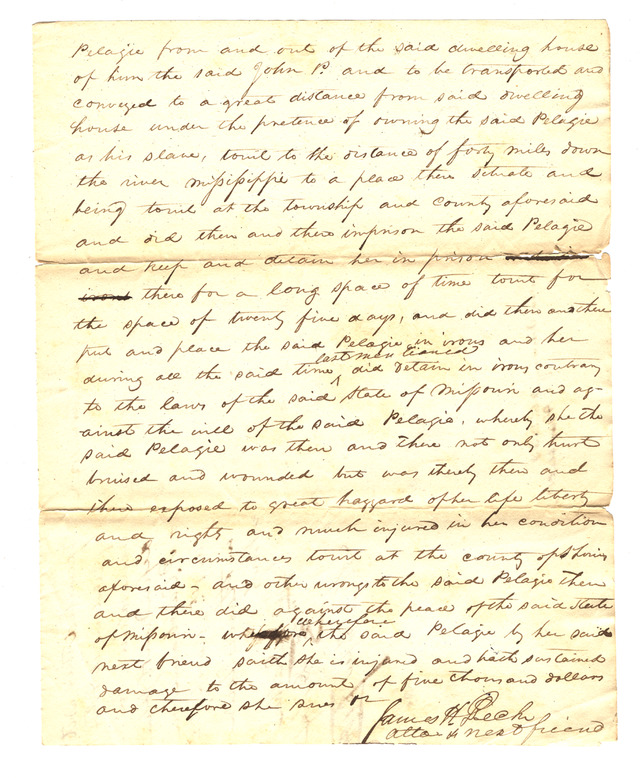 Pelagie from and out of the said dwelling house
of him the said John P. and to be transported and
conveyed to a great distance from said dwelling
house under the pretence of owning the said Pelagie
as his slave, towit to the distance of forty miles down
the river Missisippie to a place there situate and
being towit at the township and County aforesaid
and did then and there imprison the said Pelagie
and keep and detain her in prison
irons there for a long space of time towit for
the space of twenty five days, and did then and there
put and place the said Pelagie in irons and her
last mentioned
during all the said time ^ did detain in irons contrary
to the laws of the said State of Missouri and ag-
ainst the will of the said Pelagie, whereby she the
said Pelagie was then and there not only hurt
bruised and wounded but was thereby then and
there exposed to great haggard of her life liberty
and right and much injured in her condition
and circumstances towit at the county of St Louis
aforesaid - and other wrongs to the said Pelagie then
and there did against the peace of the said State
wherefore
of Missouri - ^ the said Pelagie by her said
next friend saith she is injured and hath sustained
damage to the amount of five thousand dollars
and therefore she sues
James H Peck
atto & next friend